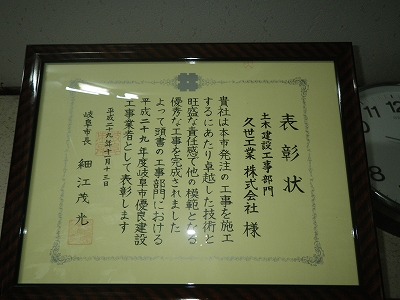 表彰状
土木建設工事部門
久世工業 株式会社 様
貴社は本市発注の工事を施工
するにあたり卓越した技術と
旺盛な責任感で他の模範となる
優秀な工事を完成されました
よって頭書の工事部門における
平成二十九年度岐阜市優良建設
工事業者として表彰します
平成二十九年十月十三日
岐阜市長 細江茂光
11
12
10
9
8